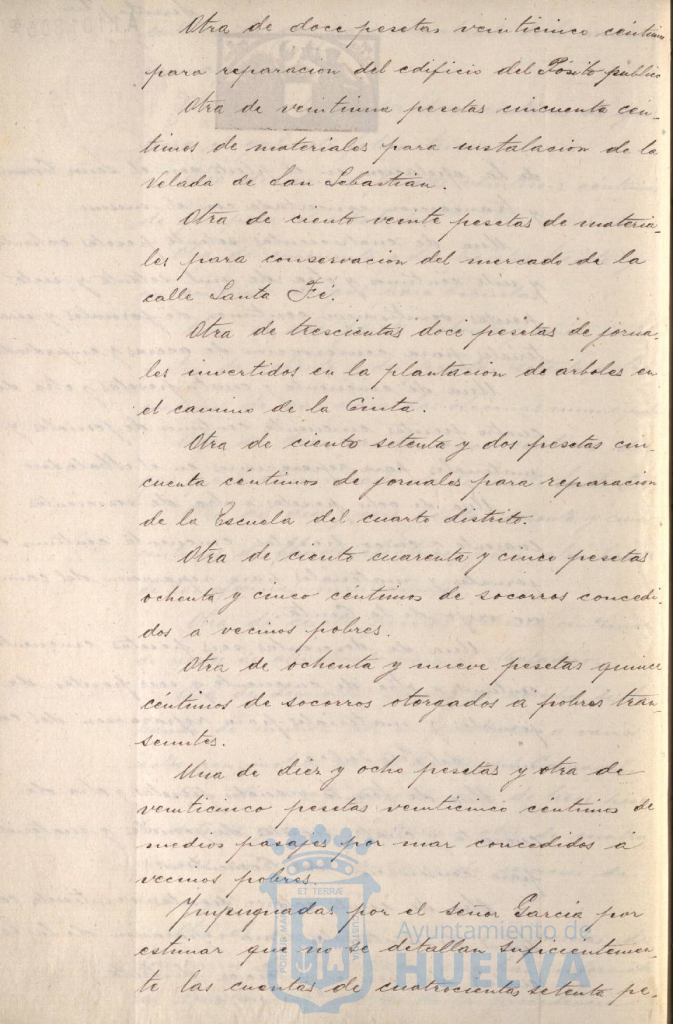 Otra de doce pesetas veinticinco céntimos
para reparacion del edificio del Pósito público
Otra de veintiuna pesetas cincuenta cén-
timos de materiales para instalacion de la
Velada de San Sebastián.
Otra de ciento veinte pesetas de materia-
les para conservacion del mercado de la
calle Santa Fé.
Otra de trescientas doce pesetas de jorna-
les invertidos en la plantacion de árboles en
el camino de la Cinta.
Otra de ciento setenta y dos pesetas cin-
cuenta céntimos de jornales para reparacion
de la Escuela del cuarto distrito.
Otra de ciento cuarenta y cinco pesetas
ochenta y cinco céntimos de socorros concedi-
dos á vecinos pobres.
Otra de ochenta y nueve pesetas quince
céntimos de socorros otorgados a pobres tran-
seuntes.
Una de diez y ocho pesetas y otra de
veinticinco pesetas veinticinco céntimos de
medios pasajes por mar concedidos á
vecinos pobres.
Impugnadas por el señor García por
estimar que no se detallan suficientemen-
te las cuentas de cuatrocientas setenta pe-
PORTUS MARIS ET TERRÆ CUSTODIA
Ayuntamiento de
HUELVA